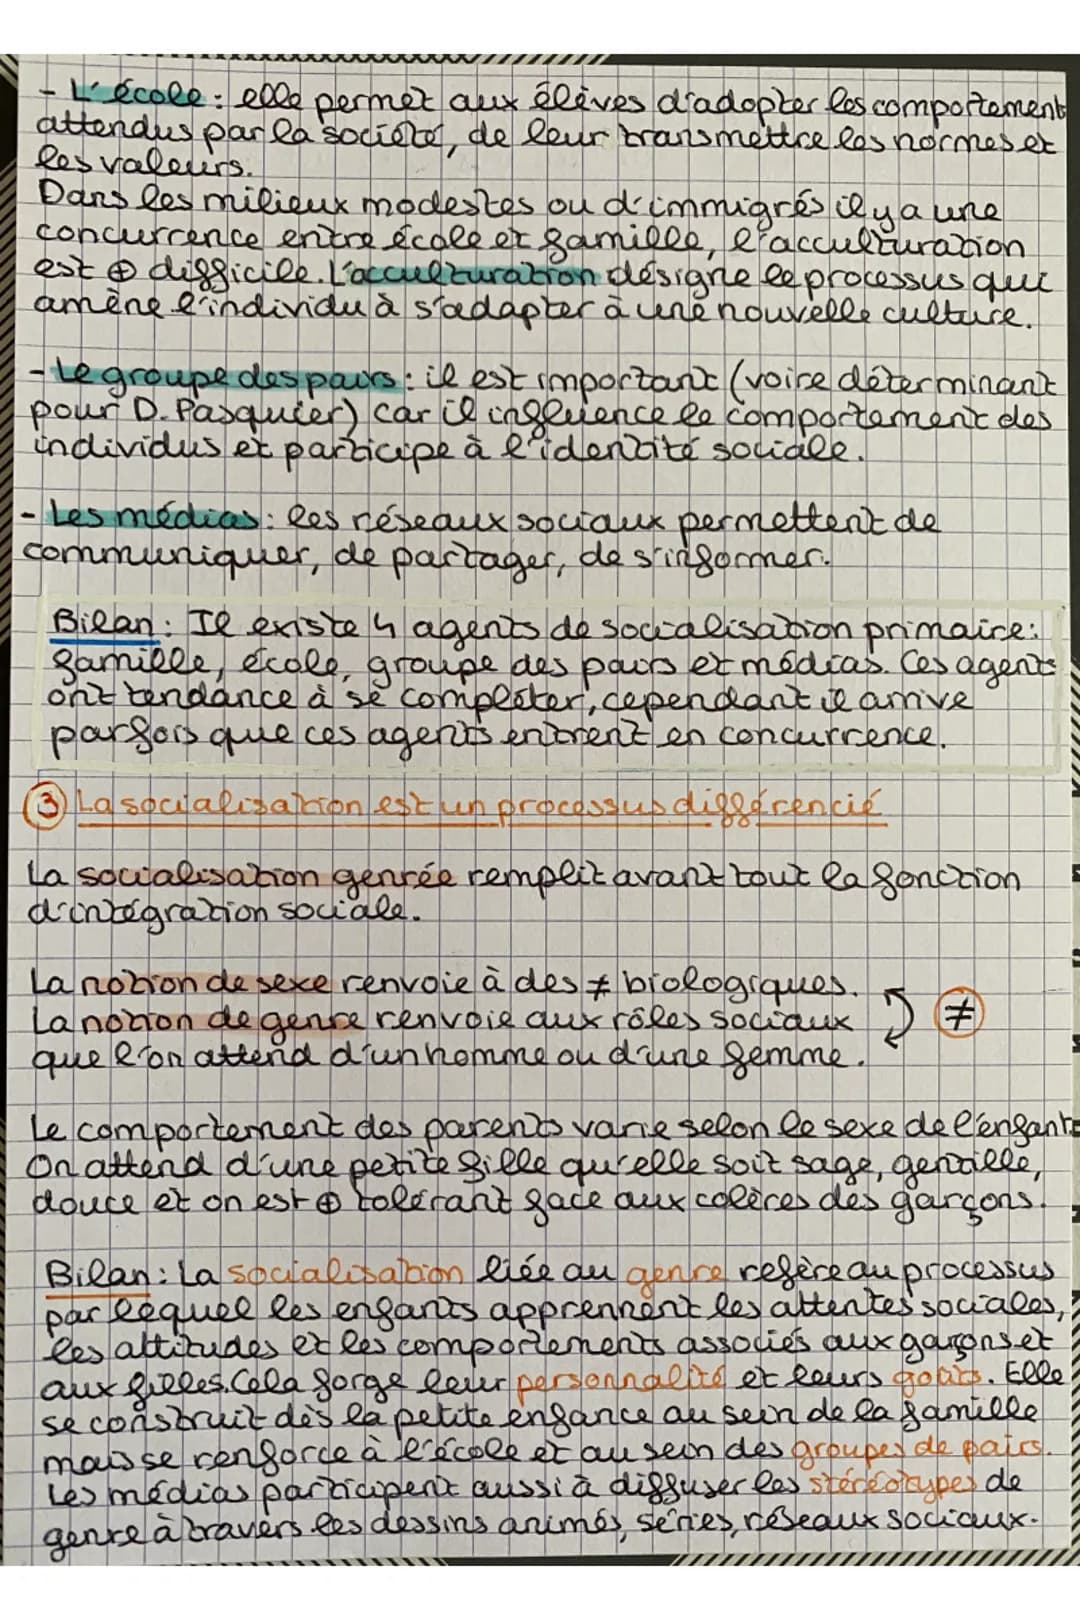 - L'école : elle permet aux élèves d'adopter les comportement
attendus par la société, de leur transmettre les normes et
les valeurs.
Dans les milieux modestes ou d'immigrés il y a une
concurrence entre école et famille, l'acculturation
est ⊕ difficile. L'acculturation désigne le processus qui
amène l'individu à s'adapter à une nouvelle culture.
- Le groupe des pairs : il est important (voire déterminant
pour D. Pasquier) car il influence le comportement des
individus et participe à l'identité sociale.
- Les médias : les réseaux sociaux permettent de
communiquer, de partager, de s'informer.
Bilan : Il existe 4 agents de socialisation primaire :
famille, école, groupe des pairs et médias. Ces agents
ont tendance à se compléter, cependant il arrive
parfois que ces agents entrent en concurrence.
③ La socialisation est un processus différencié
La socialisation genrée remplit avant tout la fonction
d'intégration sociale.
La notion de sexe renvoie à des ≠ biologiques.
La notion de genre renvoie aux rôles sociaux ≠
que l'on attend d'un homme ou d'une femme.
Le comportement des parents varie selon le sexe de l'enfant.
On attend d'une petite fille qu'elle soit sage, gentille,
douce et on est ⊕ tolérant face aux colères des garçons.
Bilan : La socialisation liée au genre refère au processus
par lequel les enfants apprennent les attentes sociales,
les attitudes et les comportements associés aux garçons et
aux filles. Cela forge leur personnalité et leurs goûts. Elle
se construit dès la petite enfance au sein de la famille
mais se renforce à l'école et au sein des groupes de pairs.
Les médias participent aussi à diffuser les stéréotypes de
genre à travers les dessins animés, séries, réseaux sociaux.